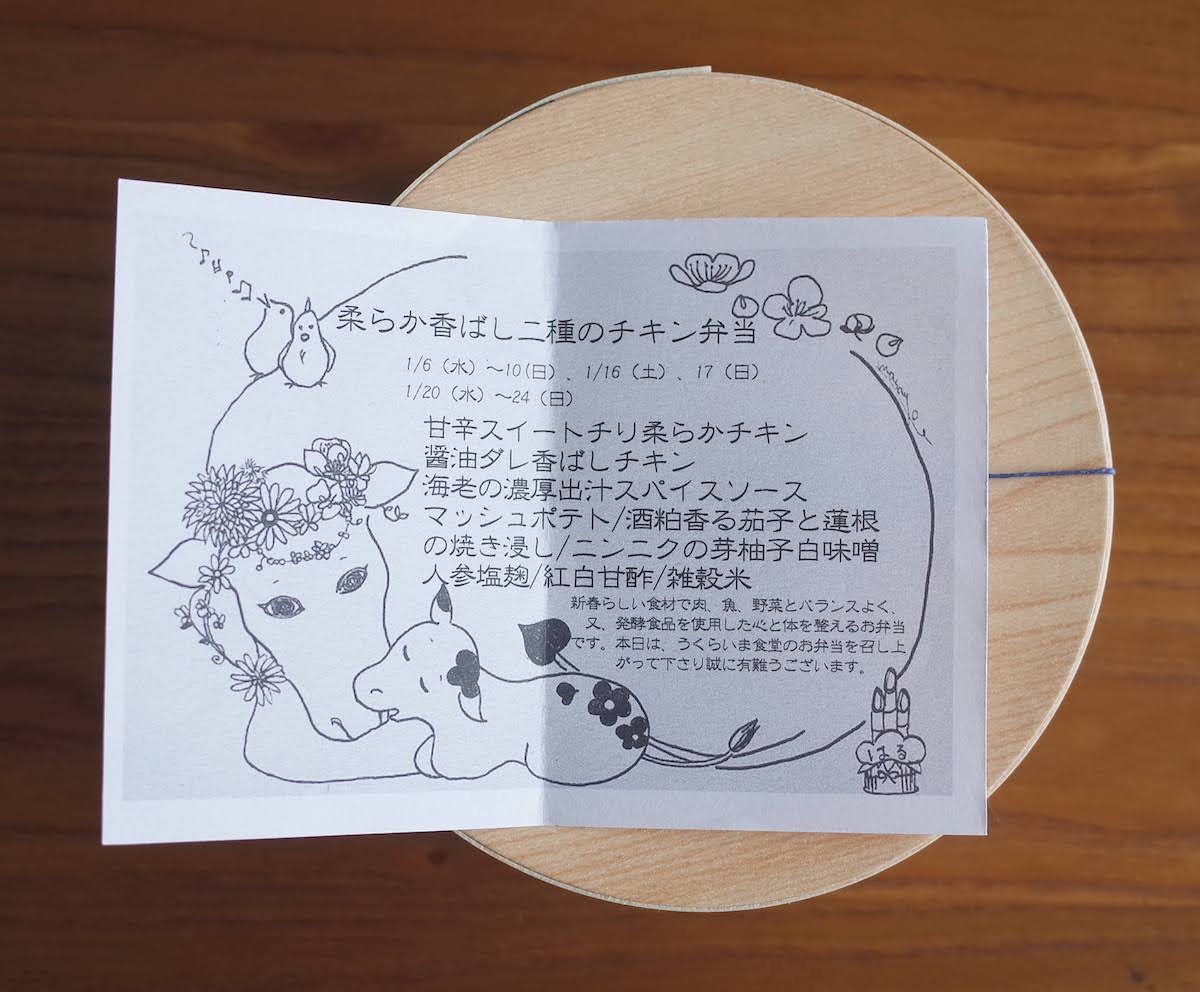 柔らか香ばし二種のチキン弁当
1/6（水）～10(日）、1/16（土）、17（日）
1/20（水）～24（日）
甘辛スイートチリ柔らかチキン
醤油ダレ香ばしチキン
海老の濃厚出汁スパイスソース
マッシュポテト/酒粕香る茄子と蓮根
の焼き浸し/ニンニクの芽柚子白味噌
人参塩麹/紅白甘酢/雑穀米
新春らしい食材で肉、魚、野菜とバランスよく、
又、発酵食品を使用した心と体を整えるお弁当
です。本日は、うくらいま食堂のお弁当を召し上
がって下さり誠に有難うございます。
はる